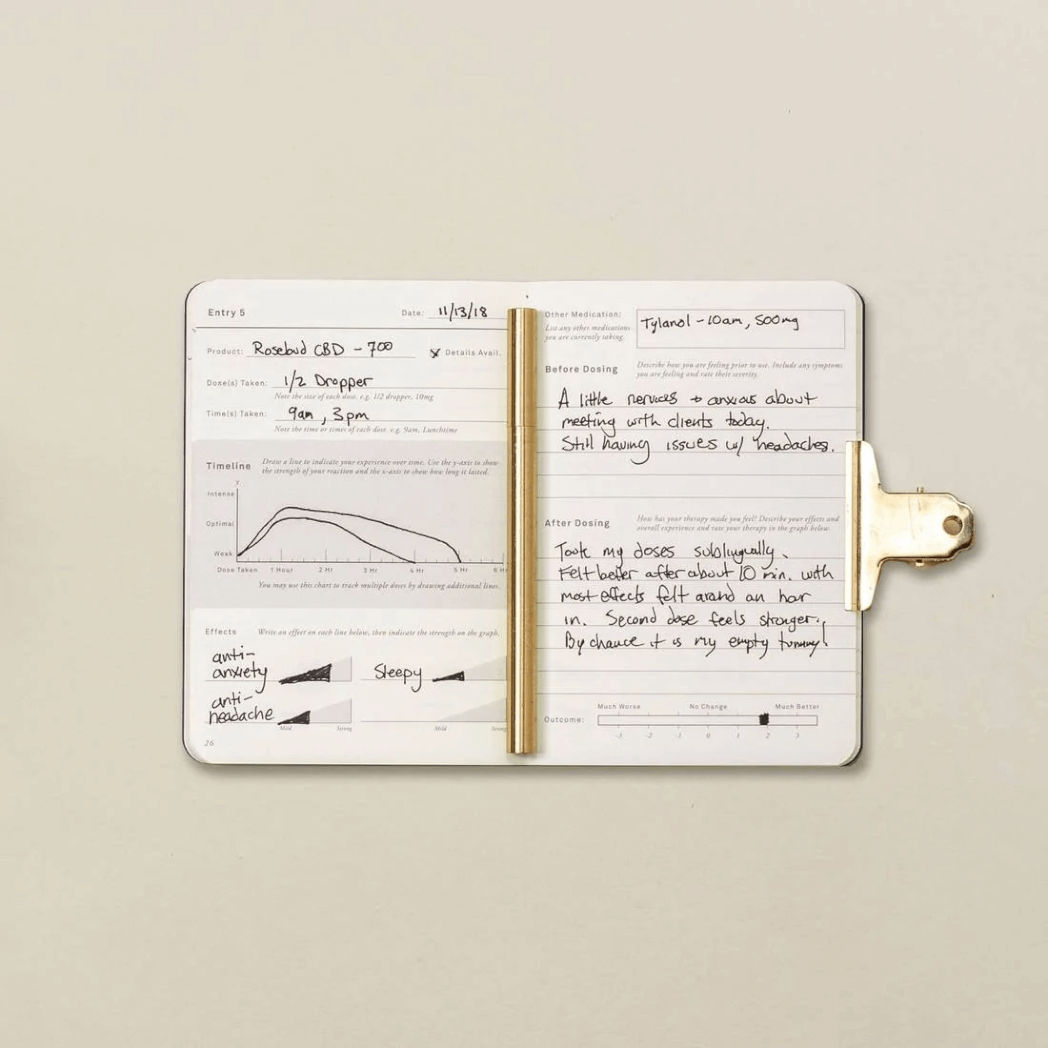 Entry 5
Date: 11/13/18
Product: Rosebud CBD - 700
Details Avail.
Dose(s) Taken: 1/2 Dropper
Note the size of each dose. e.g. 1/2 dropper, 10mg
Time(s) Taken: 9am, 3pm
Note the time or times of each dose. e.g. 9am, Lunchtime
Timeline
Draw a line to indicate your experience over time. Use the y-axis to show
the strength of your reaction and the x-axis to show how long it lasted.
Y
Intense
Optimal
Weak
Dose Taken 1 Hour 2 Hr 3 Hr 4 Hr 5 Hr 6 H
You may use this chart to track multiple doses by drawing additional lines.
Effects
Write an effect on each line below, then indicate the strength on the graph.
anti-
anxiety
Sleepy
anti-
headache
Mild Strong
Mild Strong
26
Other Medication:
List any other medications
you are currently taking.
Tylanol - 10am, 500mg
Before Dosing
Describe how you are feeling prior to use. Include any symptoms
you are feeling and rate their severity.
A little nervous + anxious about
meeting with clients today.
Still having issues w/ headaches.
After Dosing
How has your therapy made you feel? Describe your effects and
overall experience and rate your therapy in the graph below.
Took my doses sublingually.
Felt better after about 10 min. with
most effects felt around an hour
in. Second dose feels stronger.
By chance it is my empty tummy!
Much Worse No Change Much Better
Outcome:
-3 -2 -1 0 1 2 3